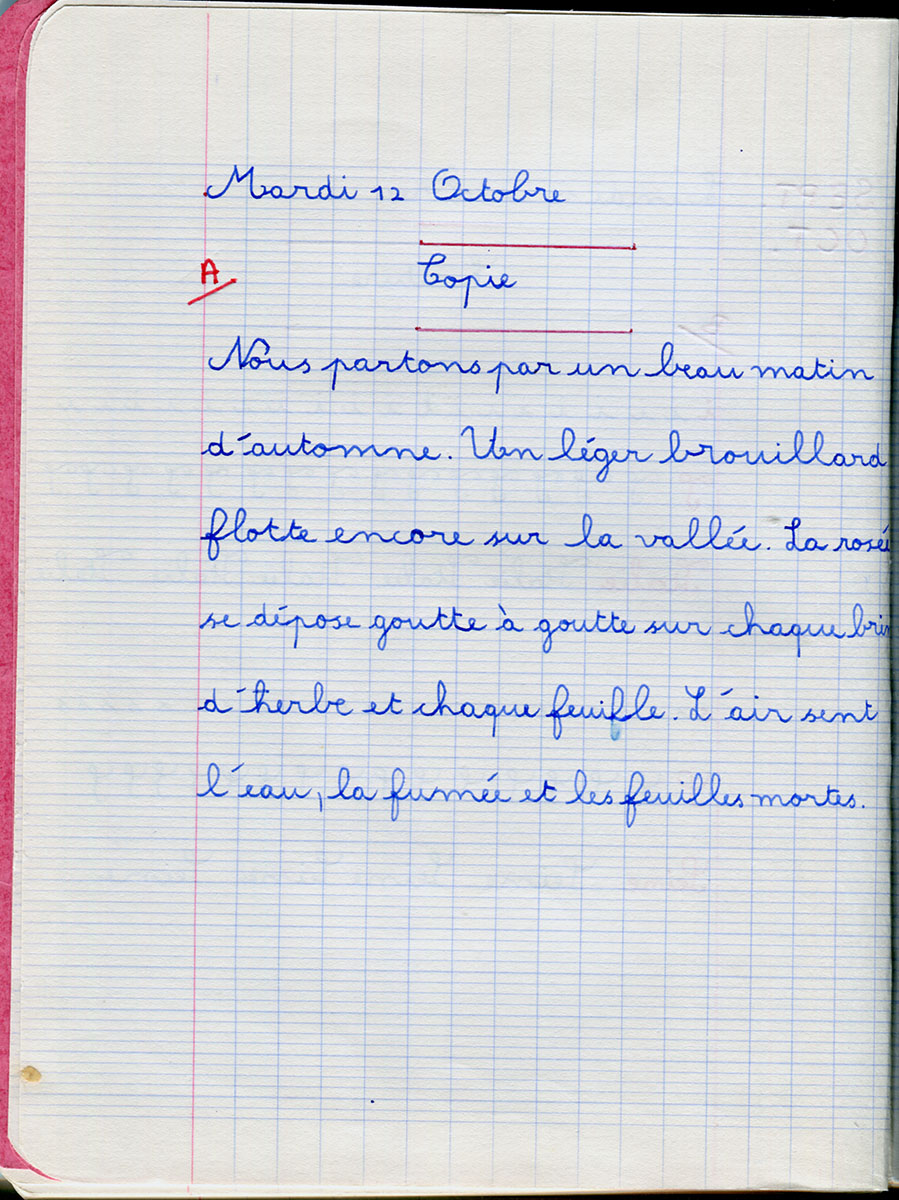 Mardi 12 Octobre
A
Copie
Nous partons par un beau matin
d'automne. Un léger brouillard
flotte encore sur la vallée. La rosée
se dépose goutte à goutte sur chaque brin
d'herbe et chaque feuille. L'air sent
l'eau, la fumée et les feuilles mortes.